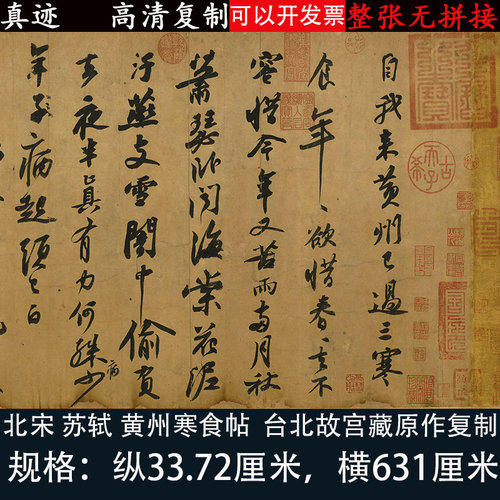 真迹 高清复制 可以开发票 整张无拼接
自我来黄州已過三寒
食年〻欲惜春〻去不
容惜今年又苦雨兩月秋
蕭瑟卧聞海棠花泥
汙燕支雪闇中偷負
去夜半真有力何殊少病
年子病起頭已白
古希天子
北宋 苏轼 黄州寒食帖 台北故宫藏原作复制
规格：纵33.72厘米，横631厘米